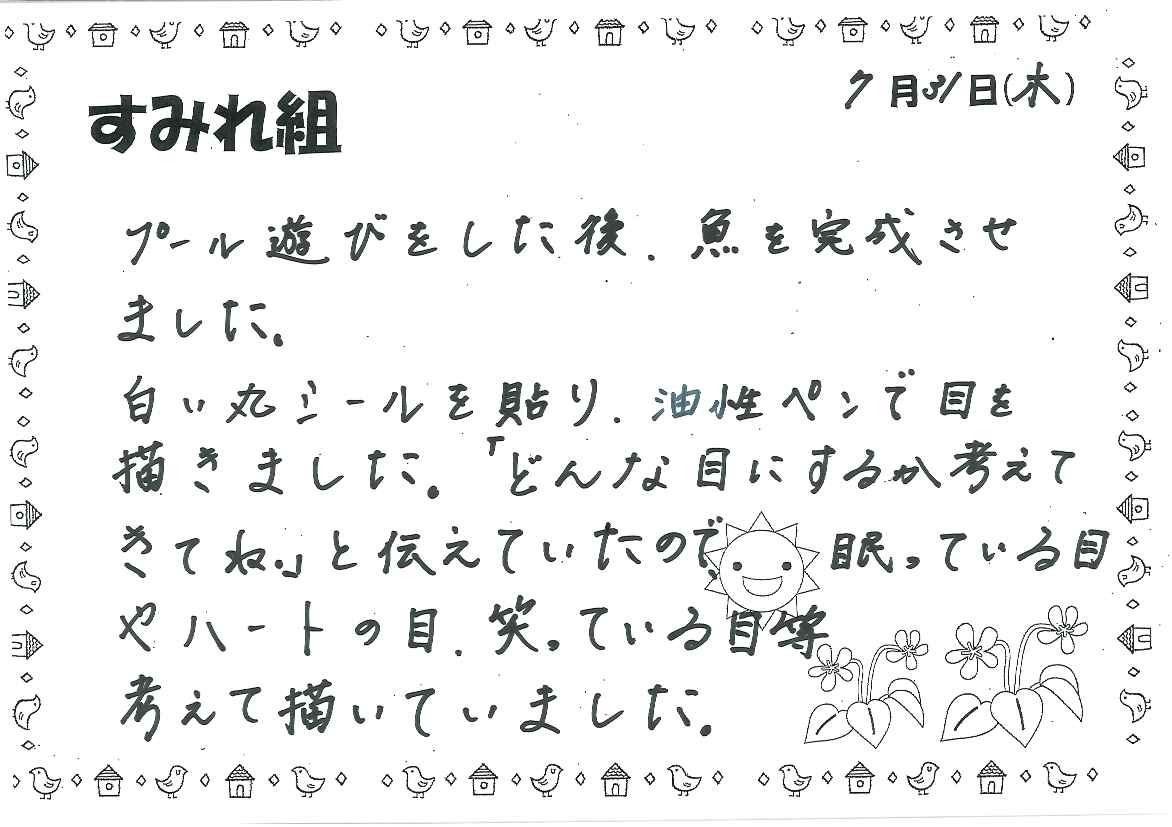 7月31日(木)
すみれ組
プール遊びをした後、魚を完成させ
ました。
白い丸シールを貼り、油性ペンで目を
描きました。「どんな目にするか考えて
きてね。」と伝えていたので、眠っている目
やハートの目、笑っている目等
考えて描いていました。